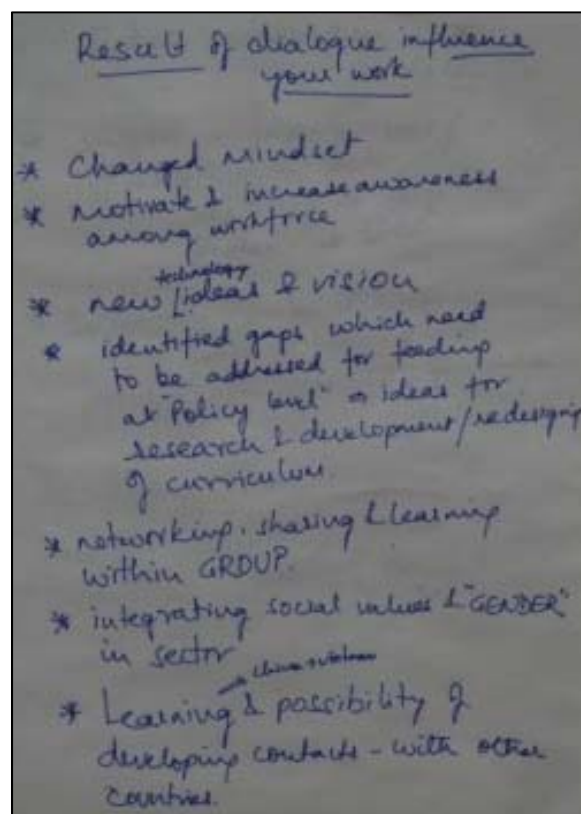 Result of dialogue influence
your work
* Changed mindset
* motivate & increase awareness
among workforce
technology
* new ideas & vision
* identified gaps which need
to be addressed for feeding
at "Policy level" or ideas for
research & development/redesigning
of curriculum.
* networking, sharing & learning
within GROUP.
* integrating social values & "GENDER"
in sector
* Learning & possibility of
developing contacts - with other
countries.